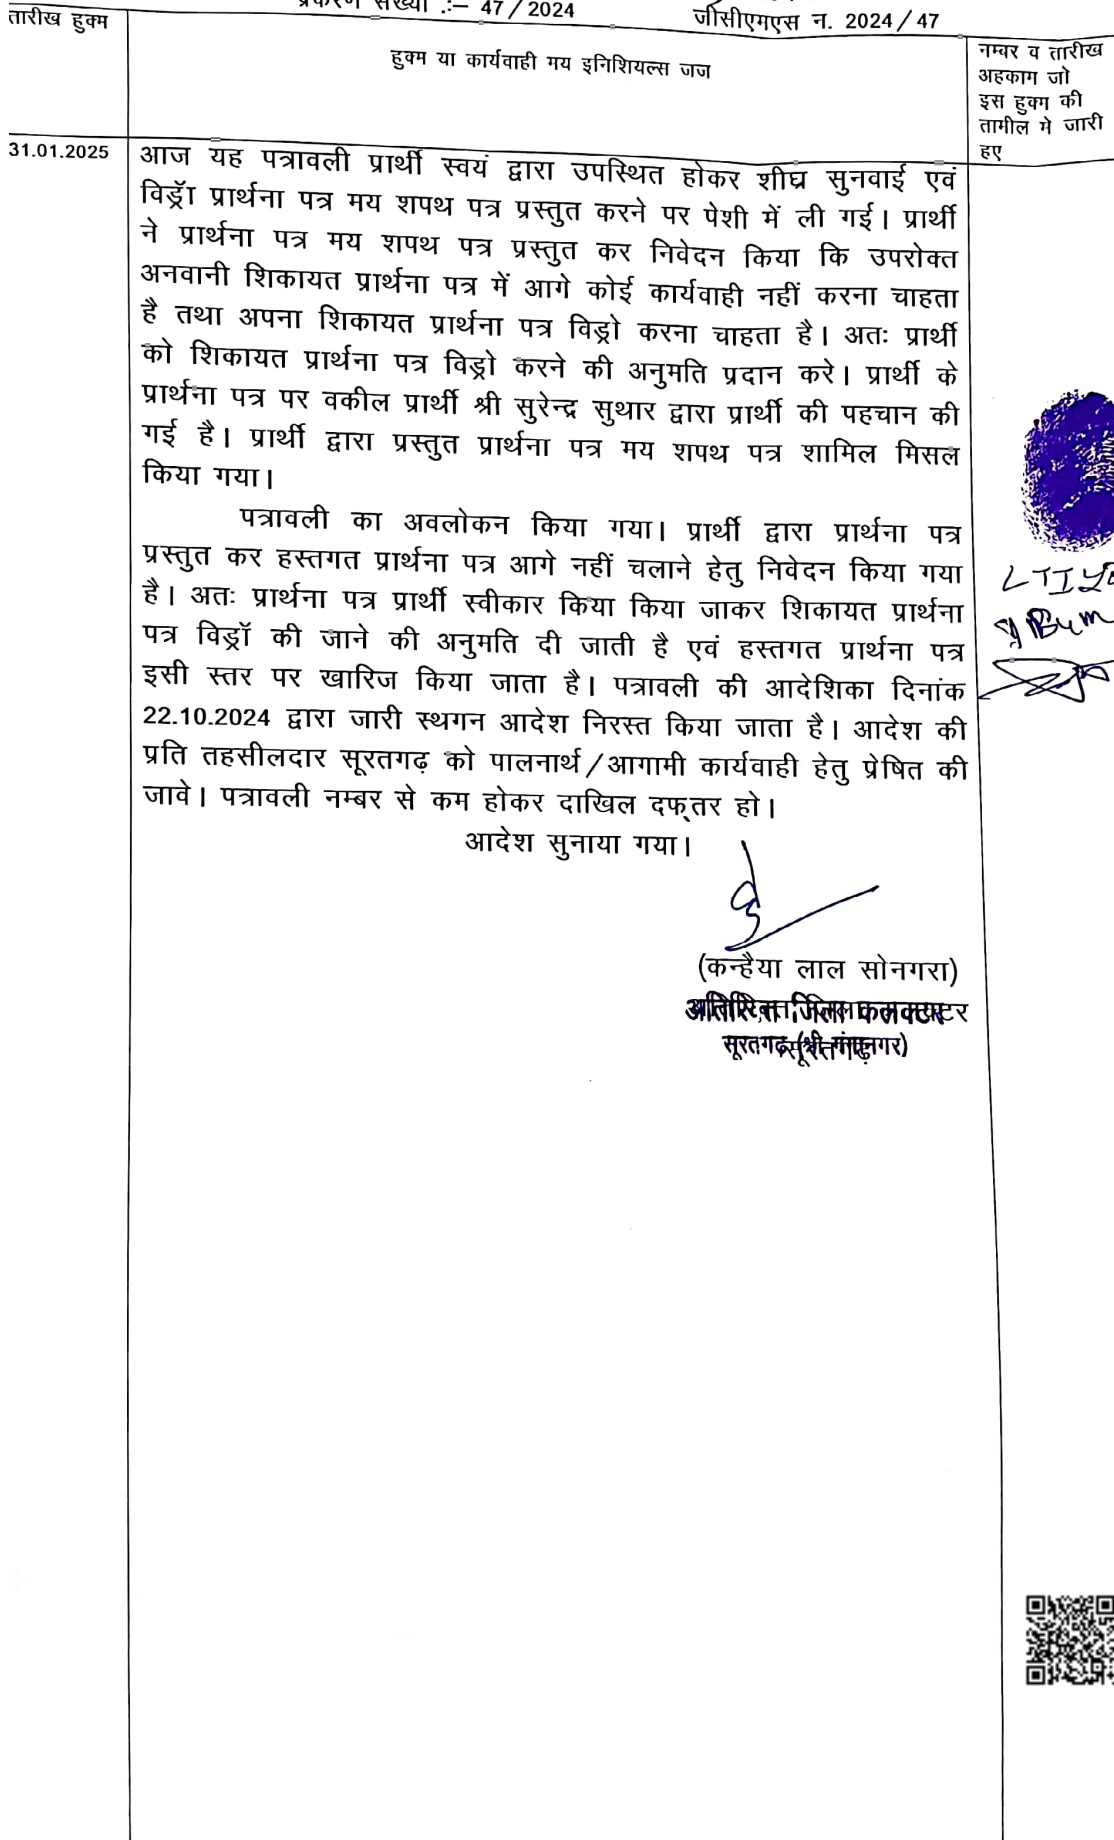 प्रकरण संख्या :– 47/2024
जीसीएमएस न. 2024/47
तारीख हुक्म
हुक्म या कार्यवाही मय इनिशियल्स जज
नम्बर व तारीख
अहकाम जो
इस हुक्म की
तामील मे जारी
हए
31.01.2025
आज यह पत्रावली प्रार्थी स्वयं द्वारा उपस्थित होकर शीघ्र सुनवाई एवं
विड्रॅा प्रार्थना पत्र मय शपथ पत्र प्रस्तुत करने पर पेशी में ली गई। प्रार्थी
ने प्रार्थना पत्र मय शपथ पत्र प्रस्तुत कर निवेदन किया कि उपरोक्त
अनवानी शिकायत प्रार्थना पत्र में आगे कोई कार्यवाही नहीं करना चाहता
है तथा अपना शिकायत प्रार्थना पत्र विड्रो करना चाहता है। अतः प्रार्थी
को शिकायत प्रार्थना पत्र विड्रो करने की अनुमति प्रदान करे। प्रार्थी के
प्रार्थना पत्र पर वकील प्रार्थी श्री सुरेन्द्र सुथार द्वारा प्रार्थी की पहचान की
गई है। प्रार्थी द्वारा प्रस्तुत प्रार्थना पत्र मय शपथ पत्र शामिल मिसल
किया गया।
पत्रावली का अवलोकन किया गया। प्रार्थी द्वारा प्रार्थना पत्र
प्रस्तुत कर हस्तगत प्रार्थना पत्र आगे नहीं चलाने हेतु निवेदन किया गया
है। अतः प्रार्थना पत्र प्रार्थी स्वीकार किया किया जाकर शिकायत प्रार्थना
पत्र विड्रॉ की जाने की अनुमति दी जाती है एवं हस्तगत प्रार्थना पत्र
इसी स्तर पर खारिज किया जाता है। पत्रावली की आदेशिका दिनांक
22.10.2024 द्वारा जारी स्थगन आदेश निरस्त किया जाता है। आदेश की
प्रति तहसीलदार सूरतगढ़ को पालनार्थ/आगामी कार्यवाही हेतु प्रेषित की
जावे। पत्रावली नम्बर से कम होकर दाखिल दफ्तर हो।
आदेश सुनाया गया।
LTI
(कन्हैया लाल सोनगरा)
अतिरिक्त जिला कलक्टर
सूरतगढ़ (श्री गंगानगर)
सूरतगढ़